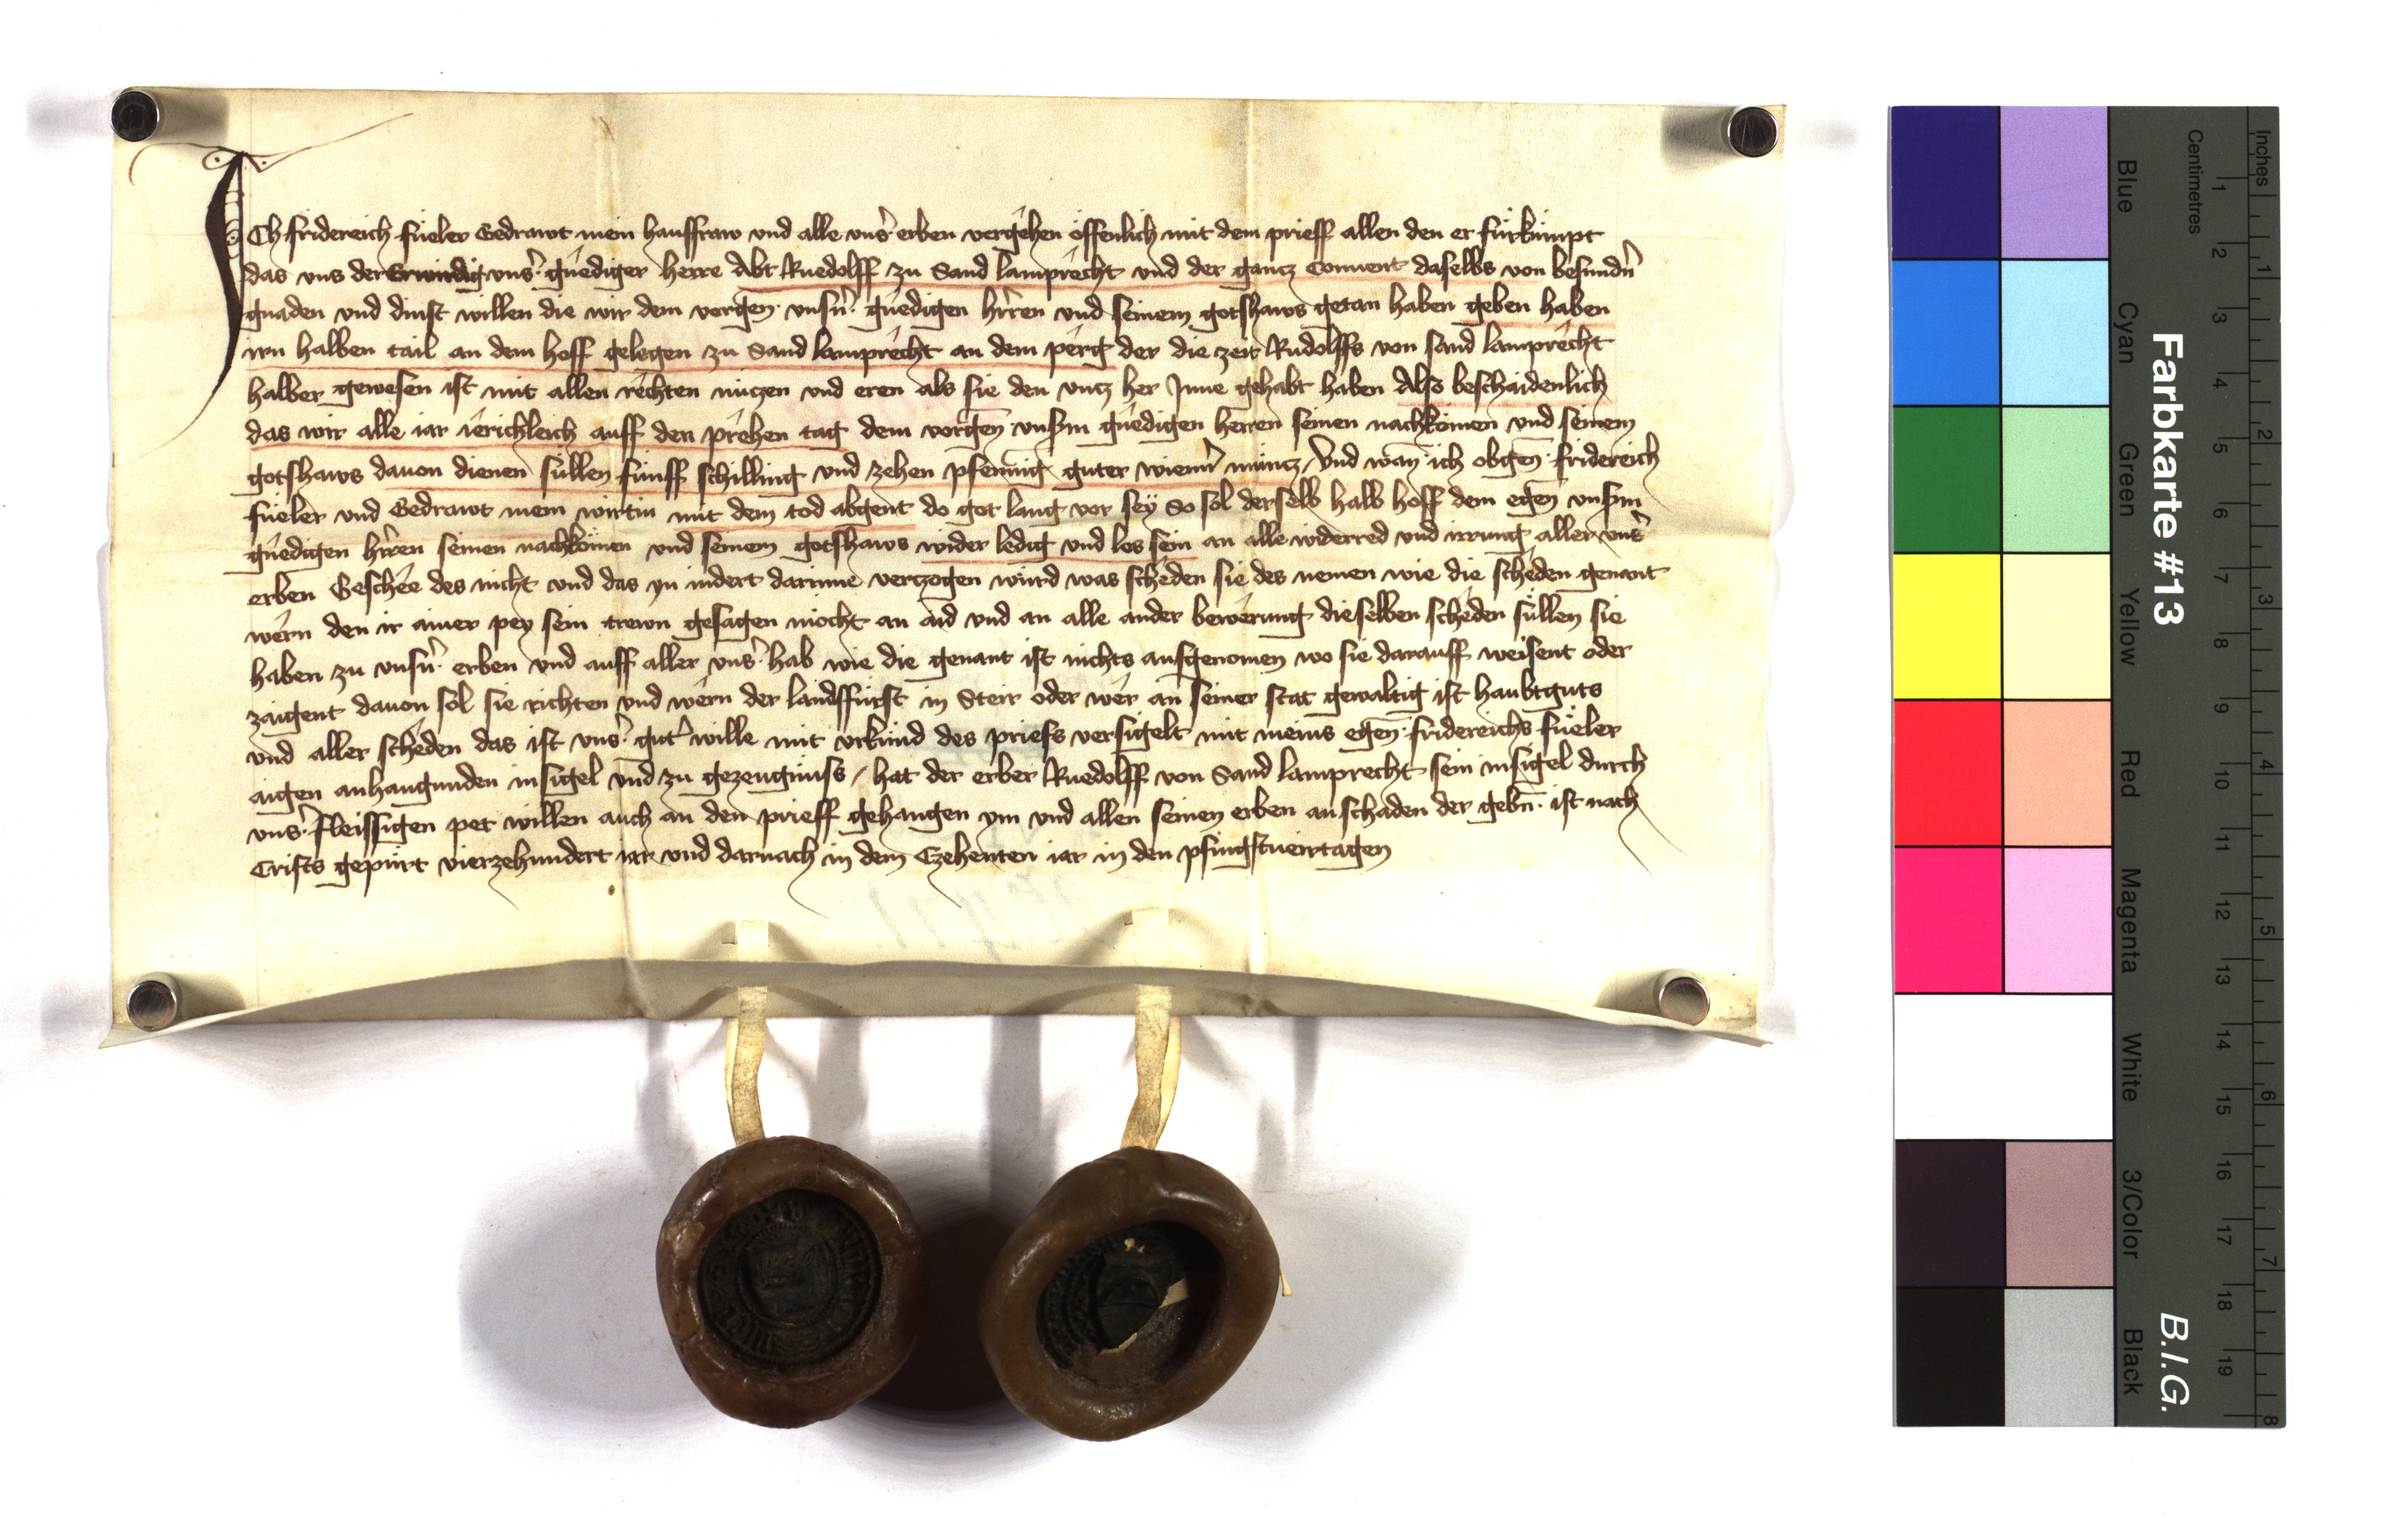 ICh fridereich füeler Gedrawt mein hausfraw vnd alle vnsˀ erben vergehen öffenlich mit dem prieff allen den er fürkümpt
das vns der Erwirdig vnsˀ gnediger herre Abt Ruedolff zu Sand lamprecht vnd der gancz Conuent daselbs von besundnˀ
gnaden vnd dinst willen die wir dem vorgen̄ vnsnˀ gnedigen hrˀren vnd seinem gotshaws getan haben geben haben
irn halben tail an dem hoff gelegen zu Sand lamprecht an dem perg der die zeit Rudolffs von sand lamprecht
halber gewesen ist mit allen rechten nüczen vnd eren als sie den vncz her Inne gehabt haben Also beschaidenlich
das wir alle iar ierichleich auff den prehen tag dem vorgen̄ vnserm gnedigen herren seinen nachkömen vnd seinem
gotshaws dauon dienen süllen fünff schilling vnd zehen pfenning guter wiennˀ müncz / Vnd wan̄ ich obgen̄ fridereich
füeler vnd Gedrawt mein wirtin mit dem tod abgent do got lang vor sey So sol derselb halb hoff dem egen̄ vnserm
gnedigen hrˀren seinen nachkömen vnd seinem gotshaws wider ledig vnd los sein an alle widerred vnd irrung aller vnsˀ
erben Geschee des nicht vnd das yn indert darinne verczogen würd was scheden sie des nemen wie die scheden genant
wern den ir ainer pey sein trewn gesagen möcht an aid vnd an alle ander bewerung dieselben scheden süllen sie
haben zu vnsnˀ erben vnd auff aller vnsˀ hab wie die genant ist nichts ausgenomen wo sie darauff weisent oder
zaigent dauon sol sie richten vnd wern der landsfürst in Steir oder wer an seiner stat gewaltig ist haubtguts
vnd aller scheden das ist vnsˀ gutˀ wille mit vrkünd des priefs versigelt mit meins egen̄ fridereichs füeler
aigen anhangunden insigel vnd zu gezeugnüss / hat der erber Ruedolff von Sand lamprecht sein insigel durch
vnsˀ fleissigen pet willen auch an den prieff gehangen ym vnd allen seinen erben an schaden der gebn̄ ist nach
Crists gepürt vierzehundert iar vnd darnach in dem Czehenten iar in den pfingstueirtagen
Farbkarte #13
B.I.G.
Inches
Centimetres
1 2 3 4 5 6 7 8 9 10 11 12 13 14 15 16 17 18 19
1 2 3 4 5 6 7 8
Blue
Cyan
Green
Yellow
Red
Magenta
White
3/Color
Black